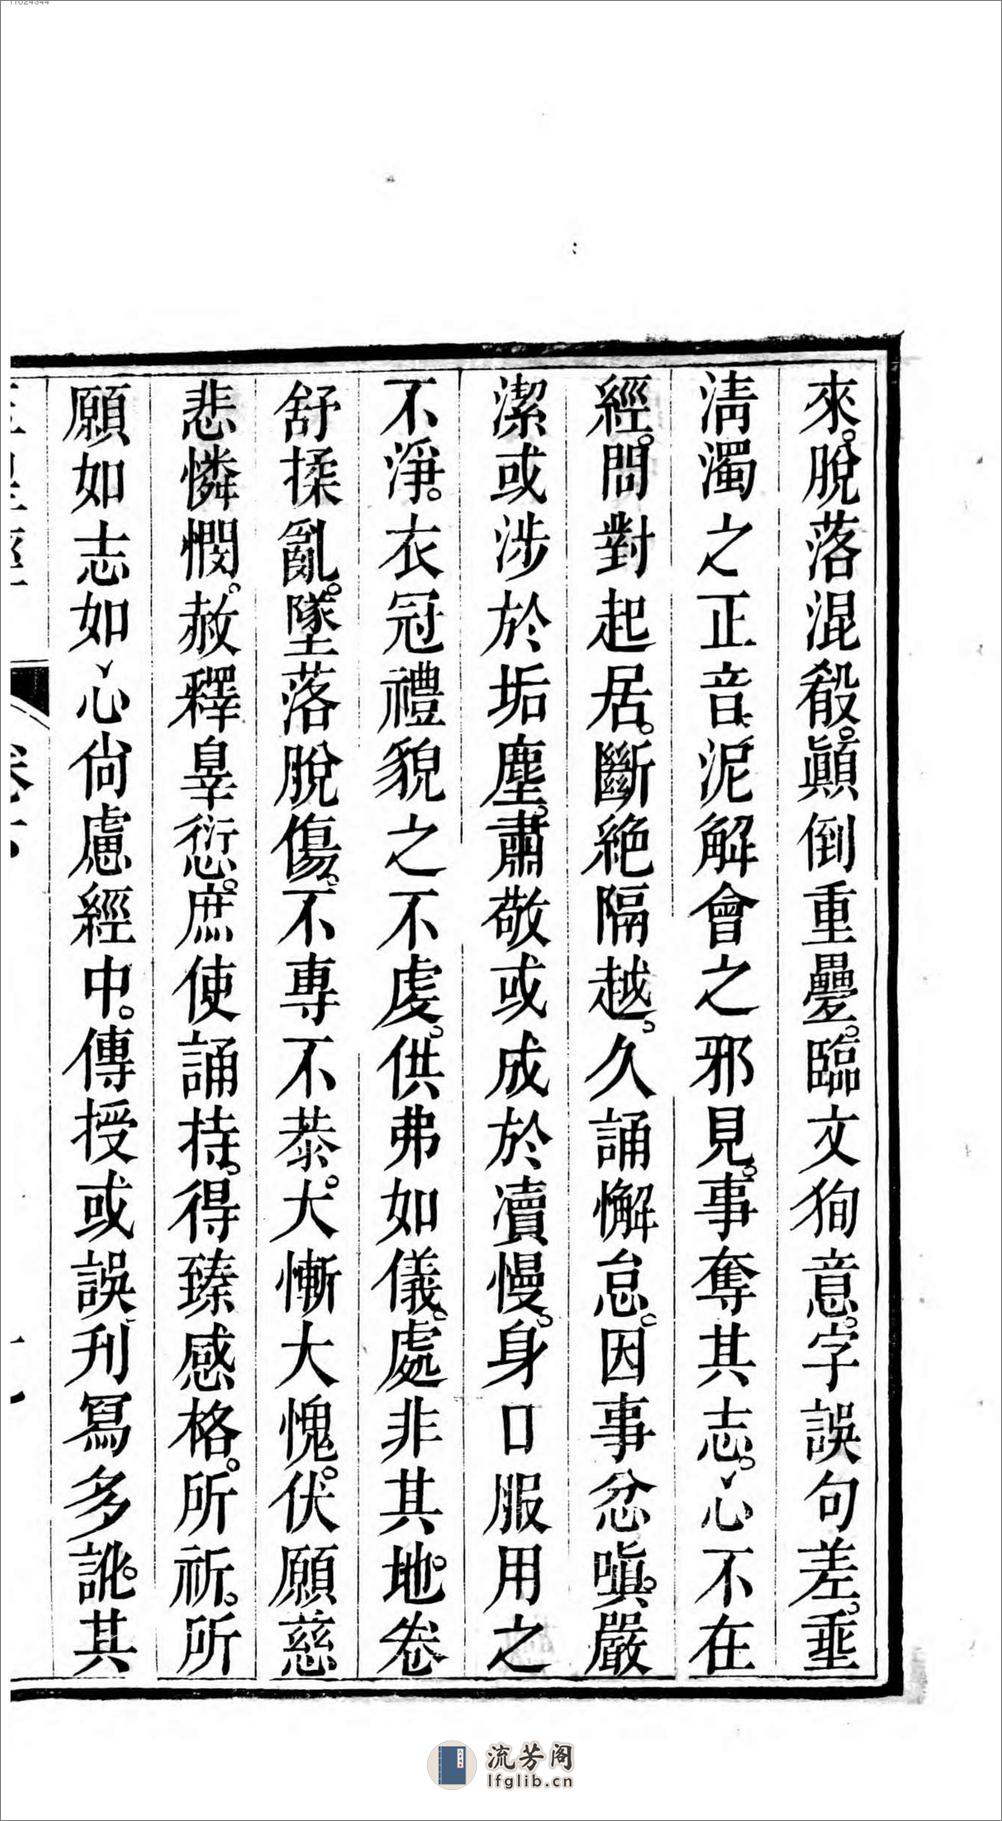 來。脫落混殽。顚倒重疊。臨文狥意。字誤句差。乖
淸濁之正音、泥解會之邪見。事奪其志。心不在
經。問對起居。斷絕隔越。久誦懈怠。因事忿嗔。嚴
潔或涉於垢塵。肅敬或成於瀆慢。身口服用之
不淨。衣冠禮貌之不虔。供弗如儀。處非其地。卷
舒揉亂。墜落脫傷。不專不恭。大慚大愧。伏願慈
悲憐憫。赦釋辠愆。庶使誦持。得臻感格。所祈。所
願如志如心尙慮經中。傳授或誤、刊寫多訛。其
流芳阁
lfglib.cn